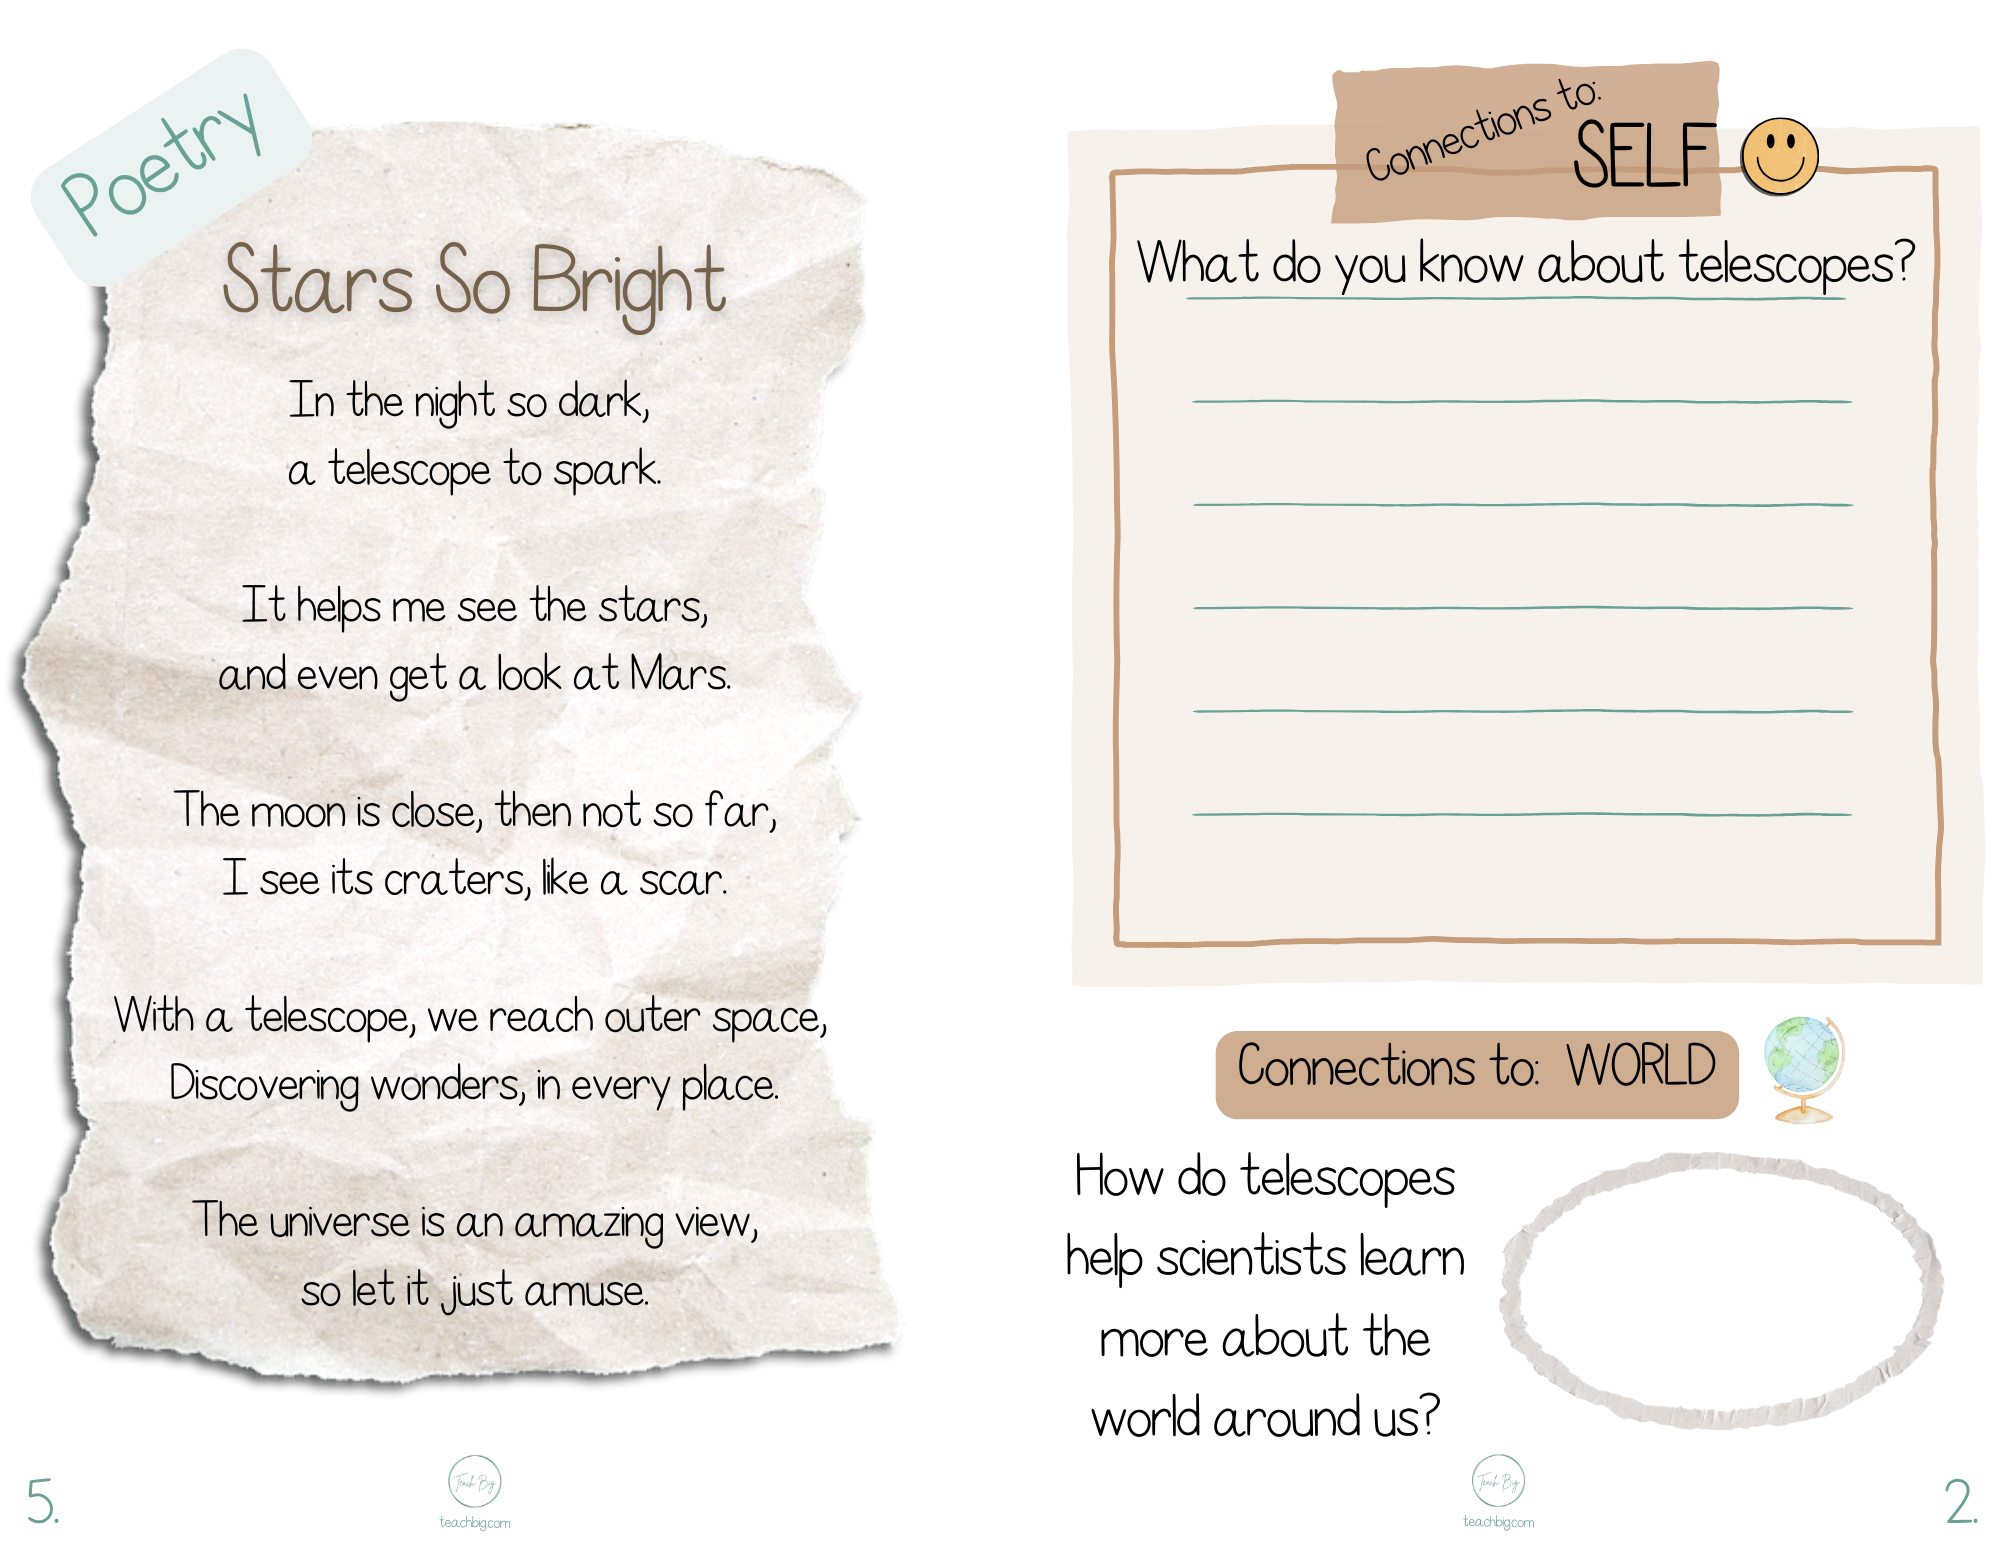 Poetry
Stars So Bright
In the night so dark,
a telescope to spark.
It helps me see the stars,
and even get a look at Mars.
The moon is close, then not so far,
I see its craters, like a scar.
With a telescope, we reach outer space,
Discovering wonders, in every place.
The universe is an amazing view,
so let it just amuse.
Teach Big
teachbig.com
5.
Connections to:
SELF
What do you know about telescopes?
Connections to: WORLD
How do telescopes
help scientists learn
more about the
world around us?
Teach Big
teachbig.com
2.